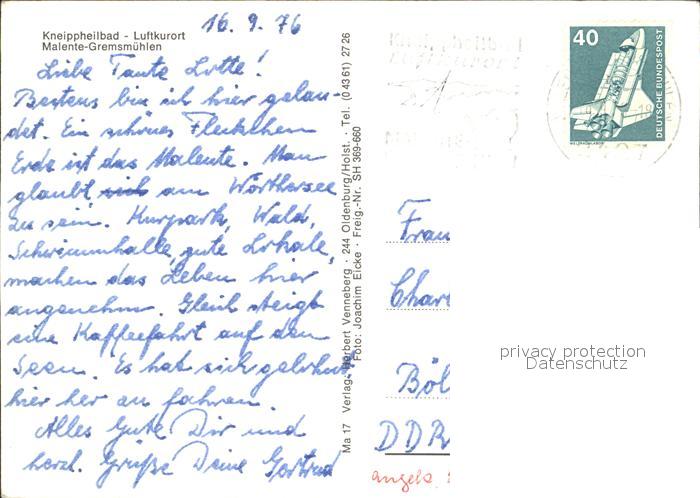 Kneippheilbad - Luftkurort
Malente-Gremsmühlen
16. 9. 76
Liebe Tante Lotte!
Bestens bin ich hier gelan-
det. Ein schönes Fleckchen
Erde ist das Malente. Man
glaubt sich am Wörthersee
zu sein. Kurpark, Wald,
Schwimmhalle, gute Lokale,
machen das Leben hier
angenehm. Gleich steigt
eine Kaffeefahrt auf den
Seen. Es hat sich gelohnt,
hier her zu fahren.
Alles Gute Dir und
herzl. Grüße Deine Gertrud
Ma 17 Verlag: Herbert Venneberg · 244 Oldenburg/Holst. · Tel. (0 43 61) 27 26
Foto: Joachim Eicke · Freig.-Nr. SH 369-660
Kneippheilbad
Luftkurort
40
DEUTSCHE BUNDESPOST
WELTRAUMLABOR
Frau
Char
Böl
DDR
privacy protection
Datenschutz